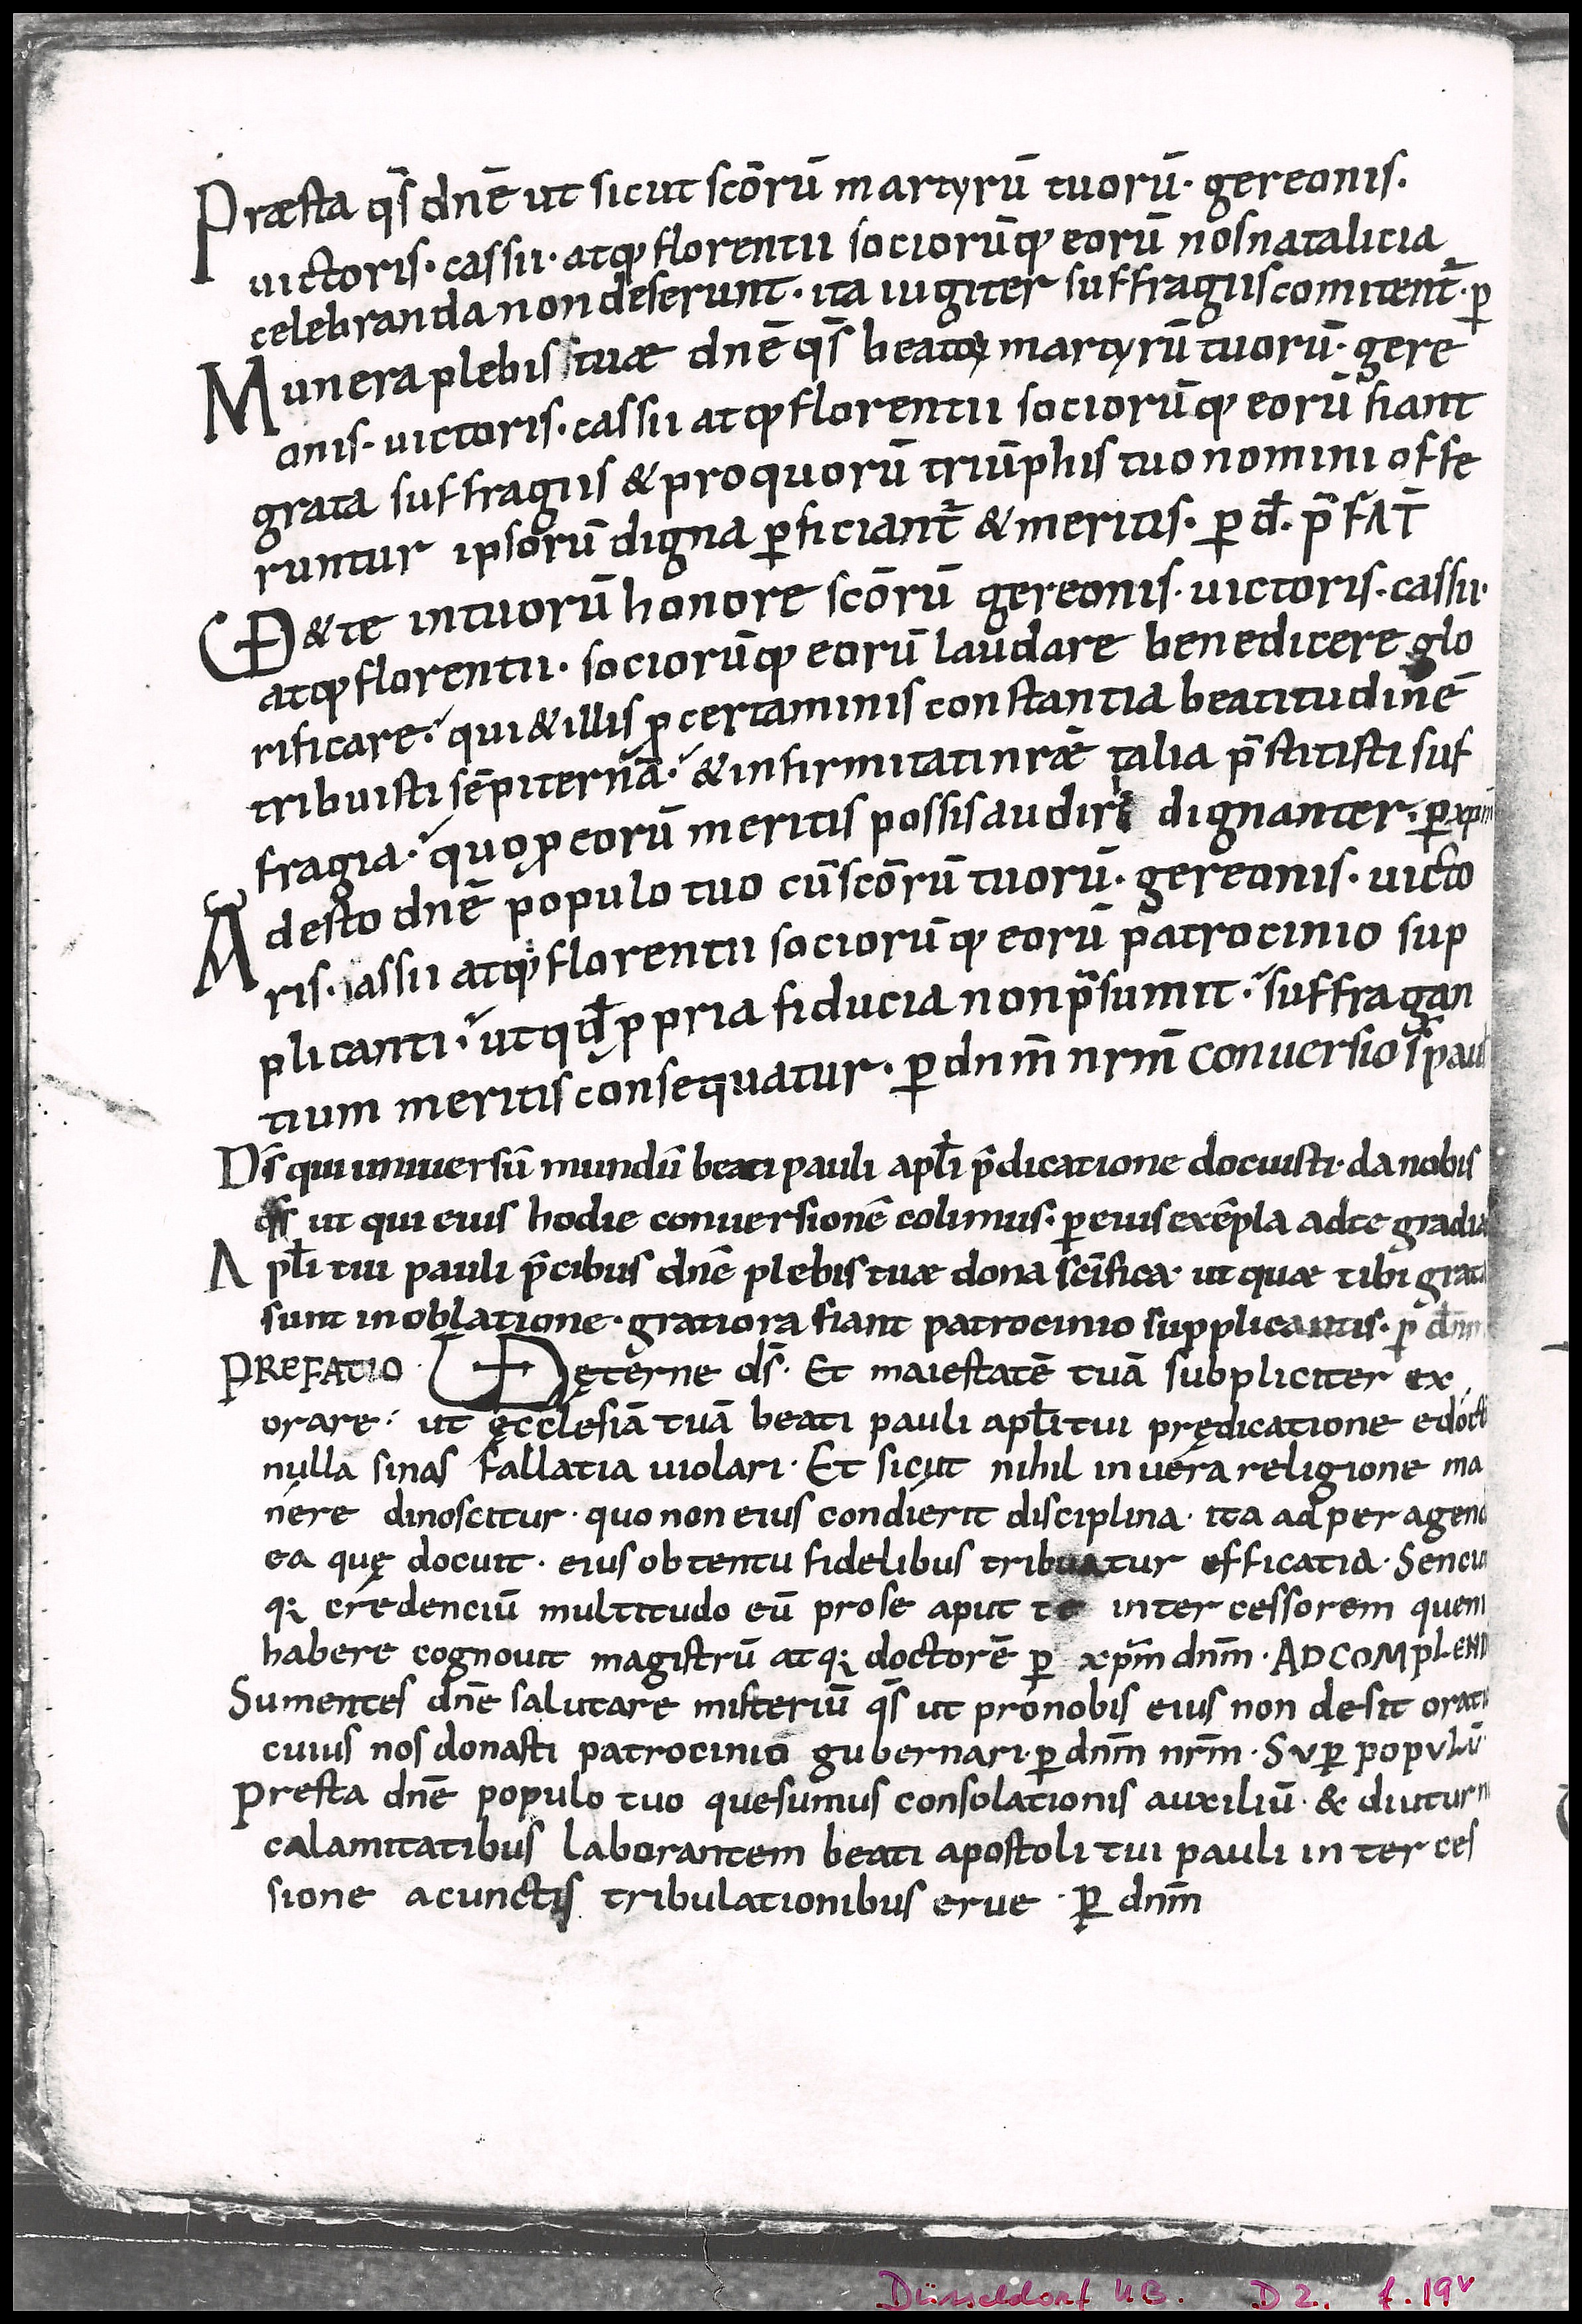 Præsta qs̄ dnē ut sicut scōrū martyrū tuorū· gereonis·
uictoris· cassii· atq; florentii sociorūq; eorū nos natalicia
celebranda non deserunt· ita iugiter suffragiis comitent᷑· p̱
Munera plebis tuæ dnē qs̄ beatoꝝ martyrū tuorū· gere
onis· uictoris· cassii atq; florentii sociorūq; eorū fiant
grata suffragiis & pro quorū triūphis tuo nomini offe
runtur ipsorū digna ꝑficiant᷑ & meritis· ꝑ d̄· p̄FAT̄
VD & te in tuorū honore scōrū gereonis· uictoris· cassii·
atq; florentii· sociorūq; eorū laudare benedicere glo
rificare· qui & illis ꝓ certaminis constantia beatitudinē
tribuisti sēpiternā· & infirmitati nrǣ talia p̄stitisti suf
fragia· quo ꝓ eorū meritis possis audiri dignanter· ꝑ xpm̄
Adesto dnē populo tuo cū scōrū tuorū· gereonis· uicto
ris· cassii atq; florentii sociorūq; eorū patrocinio sup
plicanti· ut qđ ꝓpria fiducia non p̄sumit· suffragan
tium meritis consequatur· ꝑ dnm̄ nrm̄ Conuersio s̄ pauli
Ds̄ qui uniuersū mundū beati pauli apłi p̄dicatione docuisti· da nobis
qs̄ ut qui eius hodie conuersionē colimus· ꝑ eius exēpla ad te gradia
Apłi tui pauli p̄cibus dnē plebis tuæ dona scīfica· ut quæ tibi grata
sunt in oblatione· gratiora fiant patrocinio supplicantis· p̄ dnm̄
PREFATIO· VD ęterne ds̄· Et maiestatē tuā subpliciter ex
orare· ut ęcclesiā tuā beati pauli apłi tui prędicatione edoct
nulla sinas fallatia uiolari· Et sicut nihil in uera religione ma
nere dinoscitur· quo non eius condierit disciplina· ita ad peragend
ea quę docuit· eius obtentu fidelibus tribuatur efficatia· Senciat
q; credenciū multitudo eū pro se aput te intercessorem quem
habere cognouit magistrū atq; doctorē ꝑ xpm̄ dnm̄· AD COMPLEND
Sumentes dnē salutare misteriū qs̄ ut pro nobis eius non desit orati
cuius nos donasti patrocinio gubernari· ꝑ dnm̄ nrm̄· Suꝑ populū
Presta dnē populo tuo quesumus consolationis auxiliū· & diuturn
calamitatibus laborantem beati apostoli tui pauli interces
sione a cunctis tribulationibus erue· ꝑ dnm̄
Düsseldorf UB. D 2., f. 19v